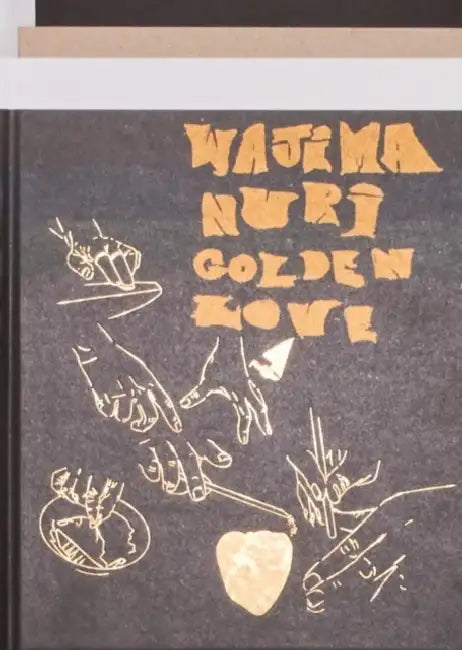 WAJIMA
NURI
GOLDEN
LOVE